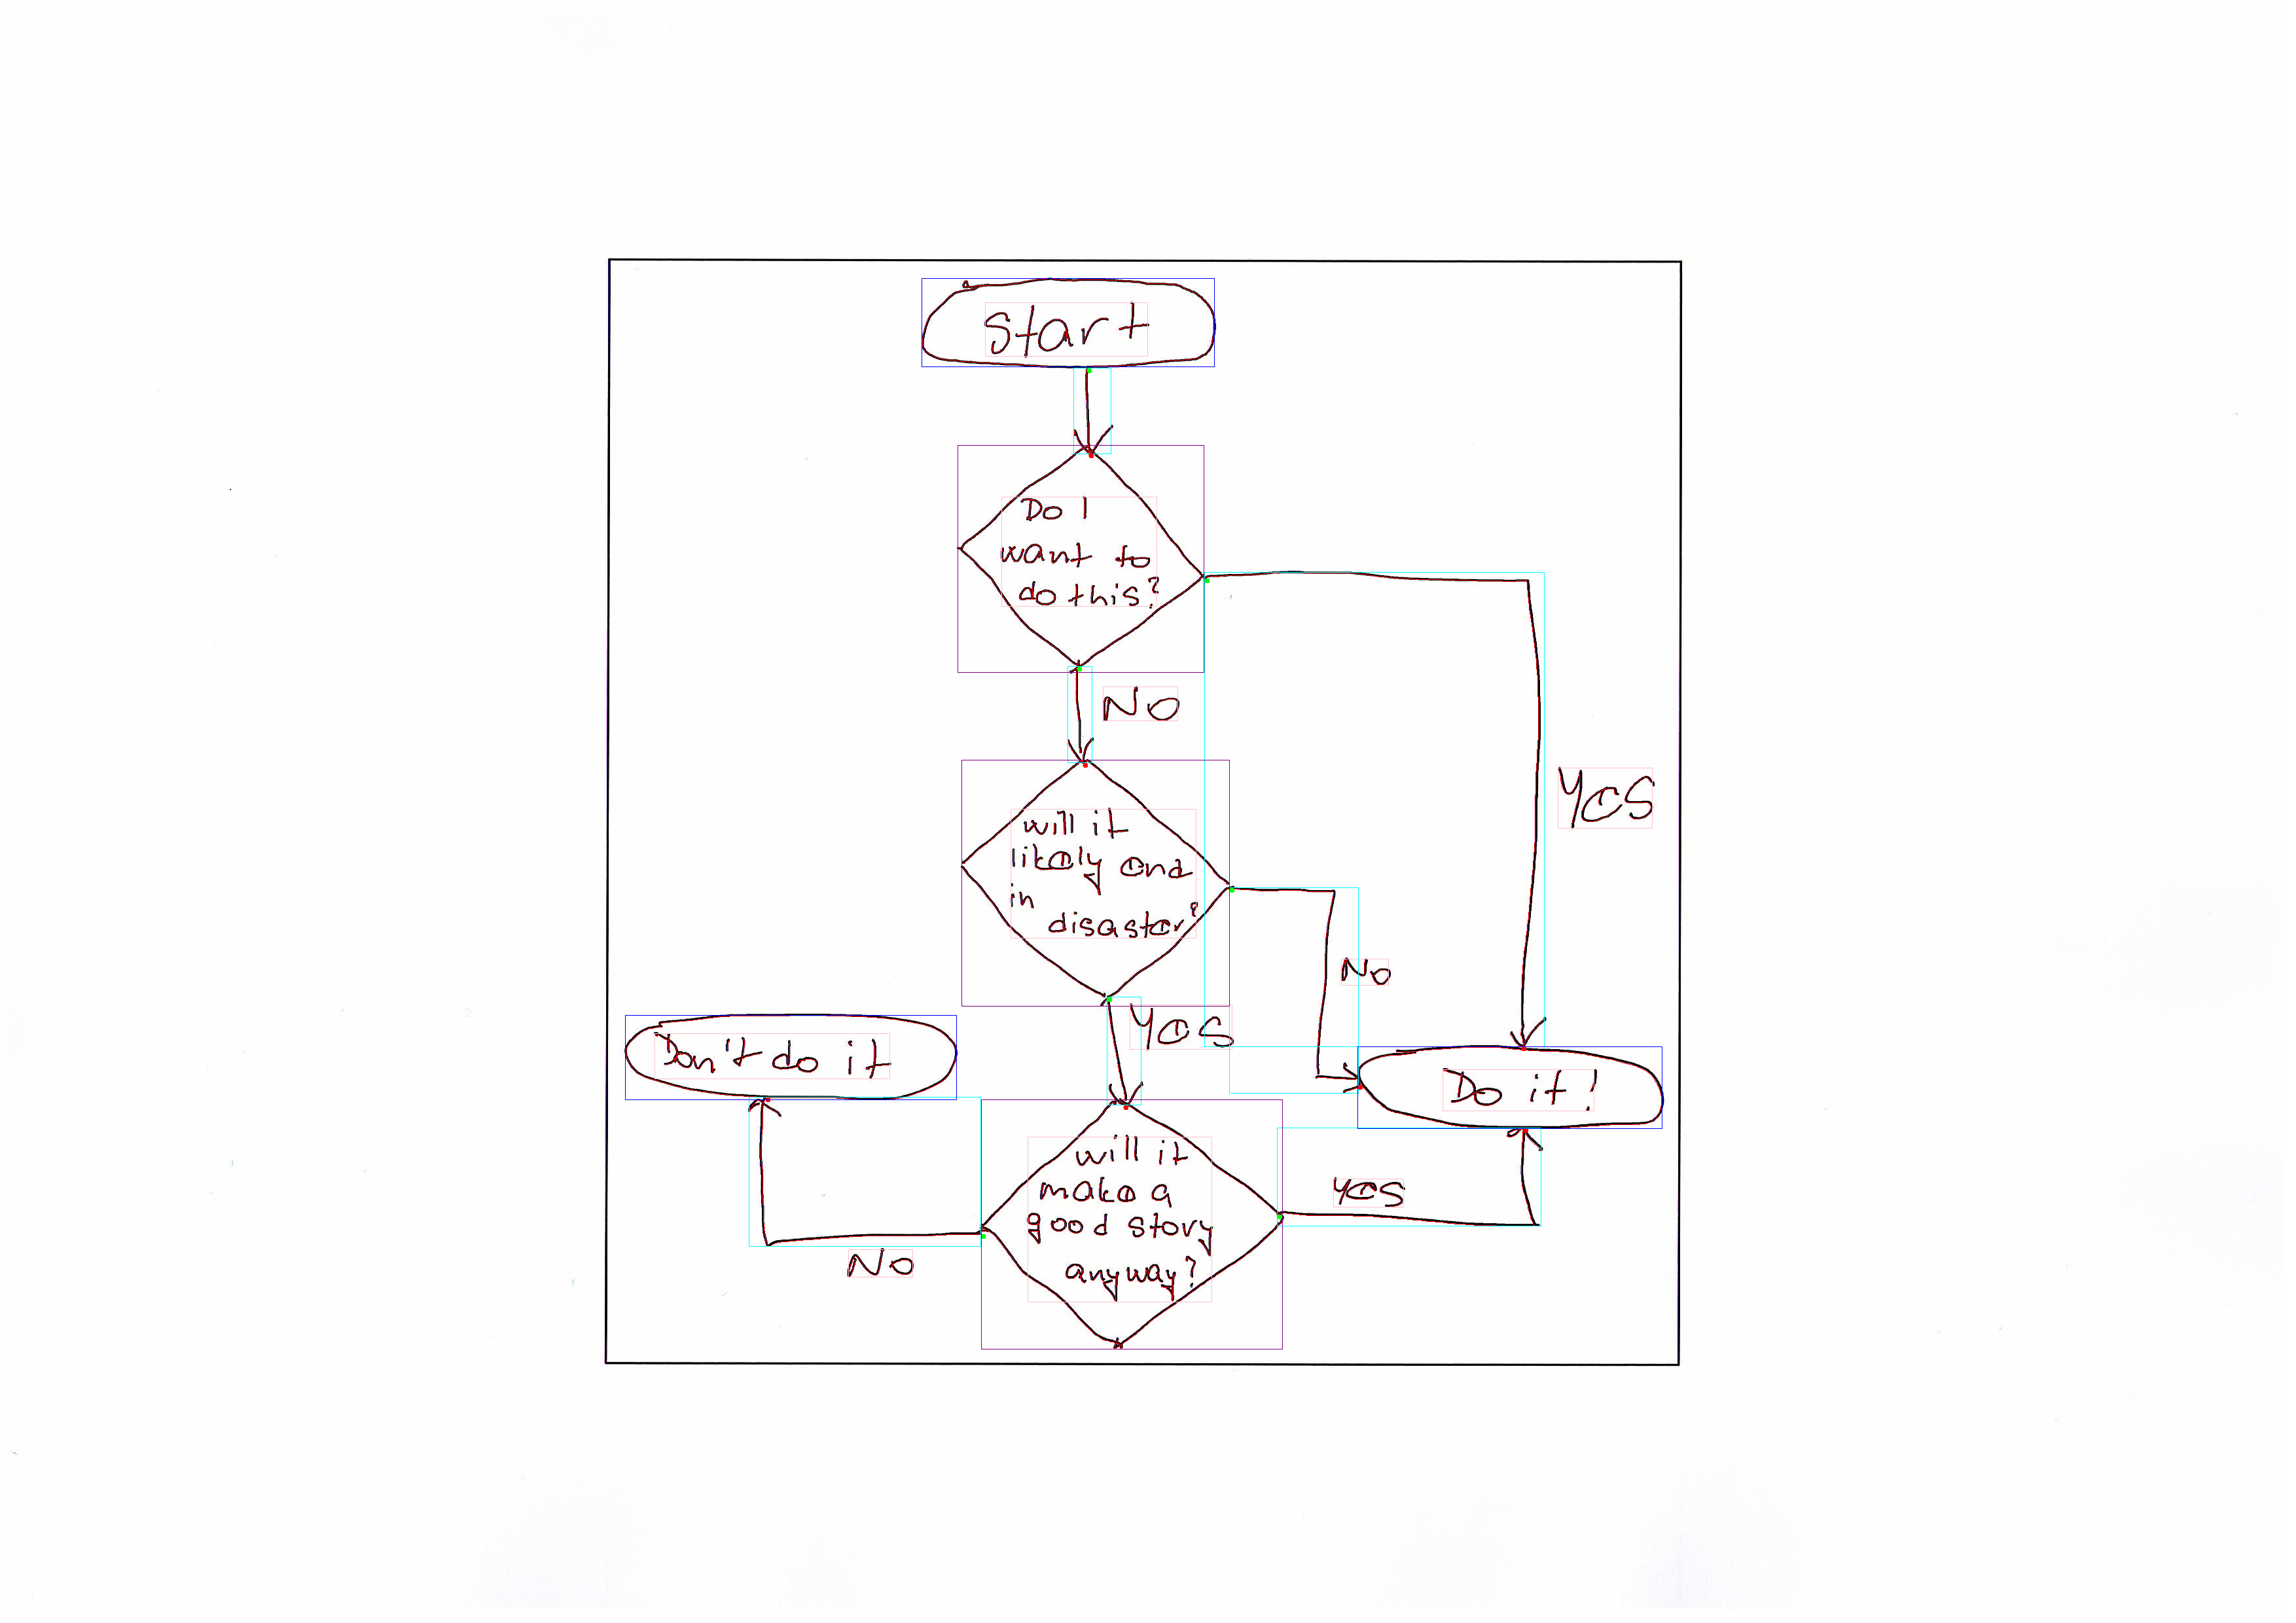 Start
Do I
want to
do this?
No
Yes
will it
likely end
in
disaster?
No
Yes
Don't do it
Do it!
will it
make a
good story
anyway?
Yes
No